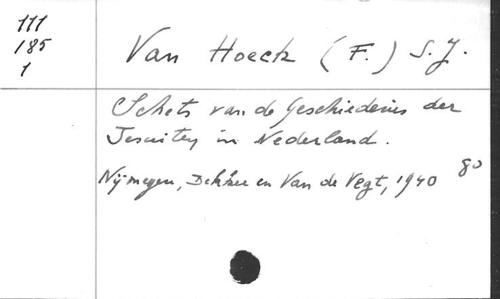 111
185
1
Van Hoeck (F.) S.J.
Schets van de Geschiedenis der
Jesuiten in Nederland.
Nijmegen, Dekker en Van de Vegt, 1940
8o